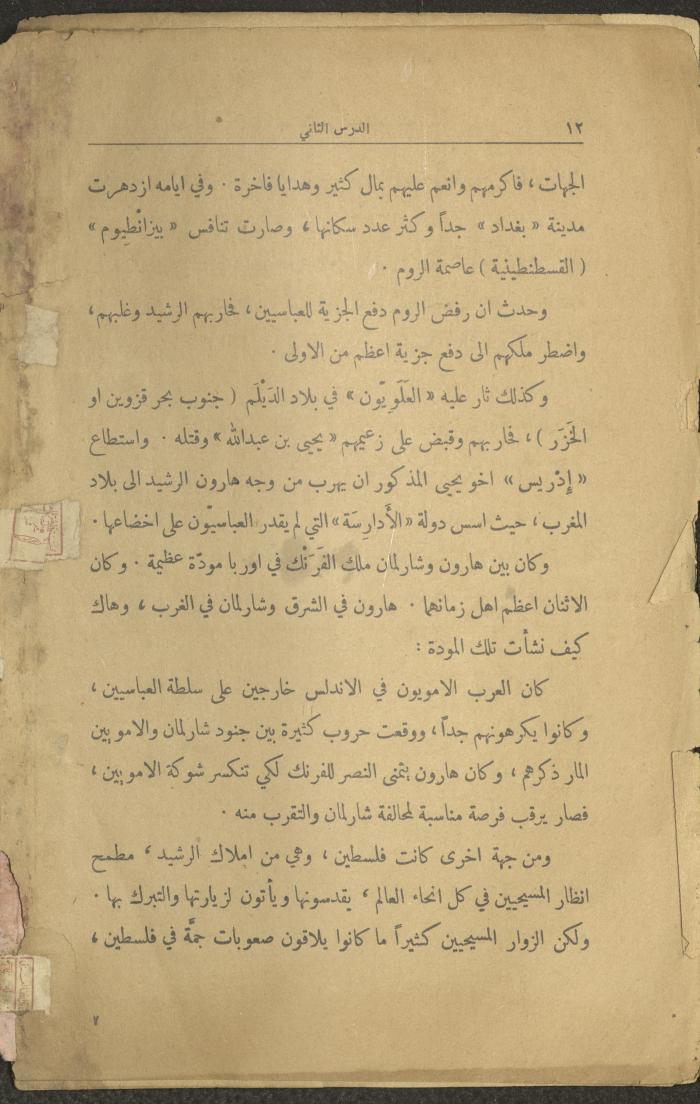 ١٢
الدرس الثاني
الجهات ، فاكرمهم وانعم عليهم بمال كثير وهدايا فاخرة . وفي ايامه ازدهرت
مدينة « بغداد » جداً وكثر عدد سكانها ، وصارت تنافس « بيزانْطِيوم »
( القسطنطينية ) عاصمة الروم .
وحدث ان رفض الروم دفع الجزية للعباسيين ، فحاربهم الرشيد وغلبهم ،
واضطر ملكهم الى دفع جزية اعظم من الاولى .
وكذلك ثار عليه « العَلَوِيّون » في بلاد الدَيْلَم ( جنوب بحر قزوين او
الخَزَر ) ، فحاربهم وقبض على زعيمهم « يحيى بن عبدالله » وقتله . واستطاع
« إِدْريس » اخو يحيى المذكور ان يهرب من وجه هارون الرشيد الى بلاد
المغرب ، حيث اسس دولة « الأَدارِسَة » التي لم يقدر العباسيّون على اخضاعها .
وكان بين هارون وشارلمان ملك الفَرَنْك في اوربا مودّة عظيمة . وكان
الاثنان اعظم اهل زمانهما . هارون في الشرق وشارلمان في الغرب ، وهاك
كيف نشأت تلك المودة :
كان العرب الامويون في الاندلس خارجين على سلطة العباسيين ،
وكانوا يكرهونهم جداً ، ووقعت حروب كثيرة بين جنود شارلمان والامويين
المار ذكرهم ، وكان هارون يتمنى النصر للفرنك لكي تنكسر شوكة الامويين ،
فصار يرقب فرصة مناسبة لمحالفة شارلمان والتقرب منه .
ومن جهة اخرى كانت فلسطين ، وهي من املاك الرشيد ، مطمح
انظار المسيحيين في كل انحاء العالم ، يقدسونها ويأتون لزيارتها والتبرك بها .
ولكن الزوار المسيحيين كثيراً ما كانوا يلاقون صعوبات جمَّة في فلسطين ،
٧